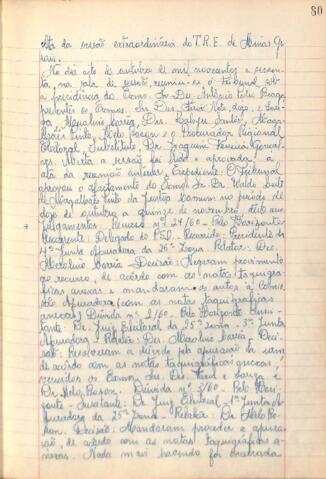 80
Ata da sessão extraordinária do T.R.E. de Minas Ge-
rais.
No dia sete de outubro de mil novecentos e sessen-
ta, na sala de sessões, reuniu-se o Tribunal sob
a presidência do Exmo. Sr. Des. Antônio Braga
presentes os Exmos. Srs. Des.
Magalhães
Pinto, Helo e o Procurador Regional
Eleitoral, Substituto, Dr. Joaquim Ferreira Gonçal-
ves. Aberta a sessão foi lida e aprovada a
ata da reunião anterior. Expediente: O Tribunal
aprovou o afastamento do Exmo. Sr. Dr. Waldir
de Magalhães Pinto da Justiça Comum no período de
doze de outubro a quinze de novembro deste ano
Julgamentos: Recurso nº 24/60 - Belo Horizonte
Recorrente: Delegado do PSD. Recorrido: Presidente da
4ª Junta Apuradora da 26ª Zona. Relator: Des.
Decisão: Negaram provimento
ao recurso, de acordo com as notas taquigrá-
ficas anexas e mandaram os autos à Comis-
são Apuradora (com as notas taquigráficas
anexas). Dúvida nº 2/60 - Belo Horizonte. Susci-
tante: Dr. Juiz Eleitoral da 25ª Zona - 3ª Junta
Apuradora - Relator: Des. Deci-
são: Resolveram a dúvida pela apuração da urna
de acordo com as notas taquigráficas anexas,
vencidos os Exmos. Srs. Des. e
Dr. Helo Dúvida nº 3/60 - Belo Hori-
zonte - Suscitante: Dr. Juiz Eleitoral - 1ª Junta A-
puradora da 25ª Zona - Relator: Dr. Helo
Decisão: Mandaram proceder a apura-
ção, de acordo com as notas taquigráficas a-
nexas. Nada mais havendo foi encerrada